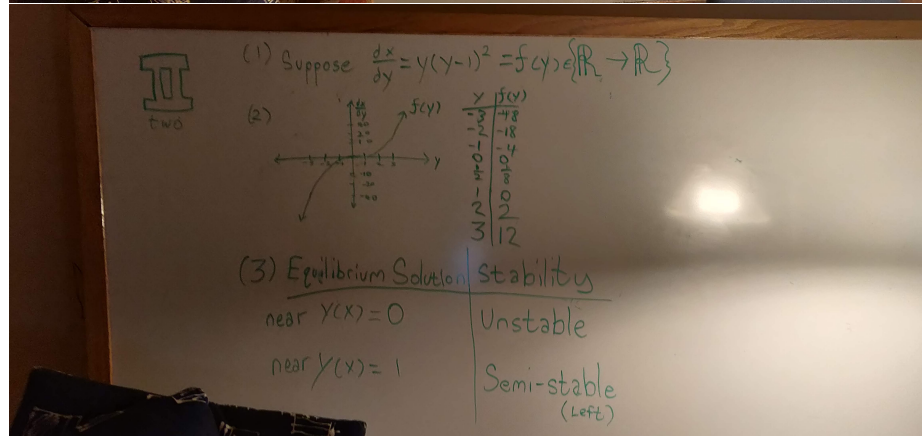 II
two
(1) Suppose dx/dy = y(y-1)² = f(y) ∈ {ℝ → ℝ}
(2)
f(y)
y
y | f(y)
-3 | -48
-2 | -18
-1 | -4
0 | 0
1/2 | 1/8
1 | 0
2 | 2
3 | 12
(3) Equilibrium Solution | Stability
near y(x) = 0 | Unstable
near y(x) = 1 | Semi-stable
(Left)